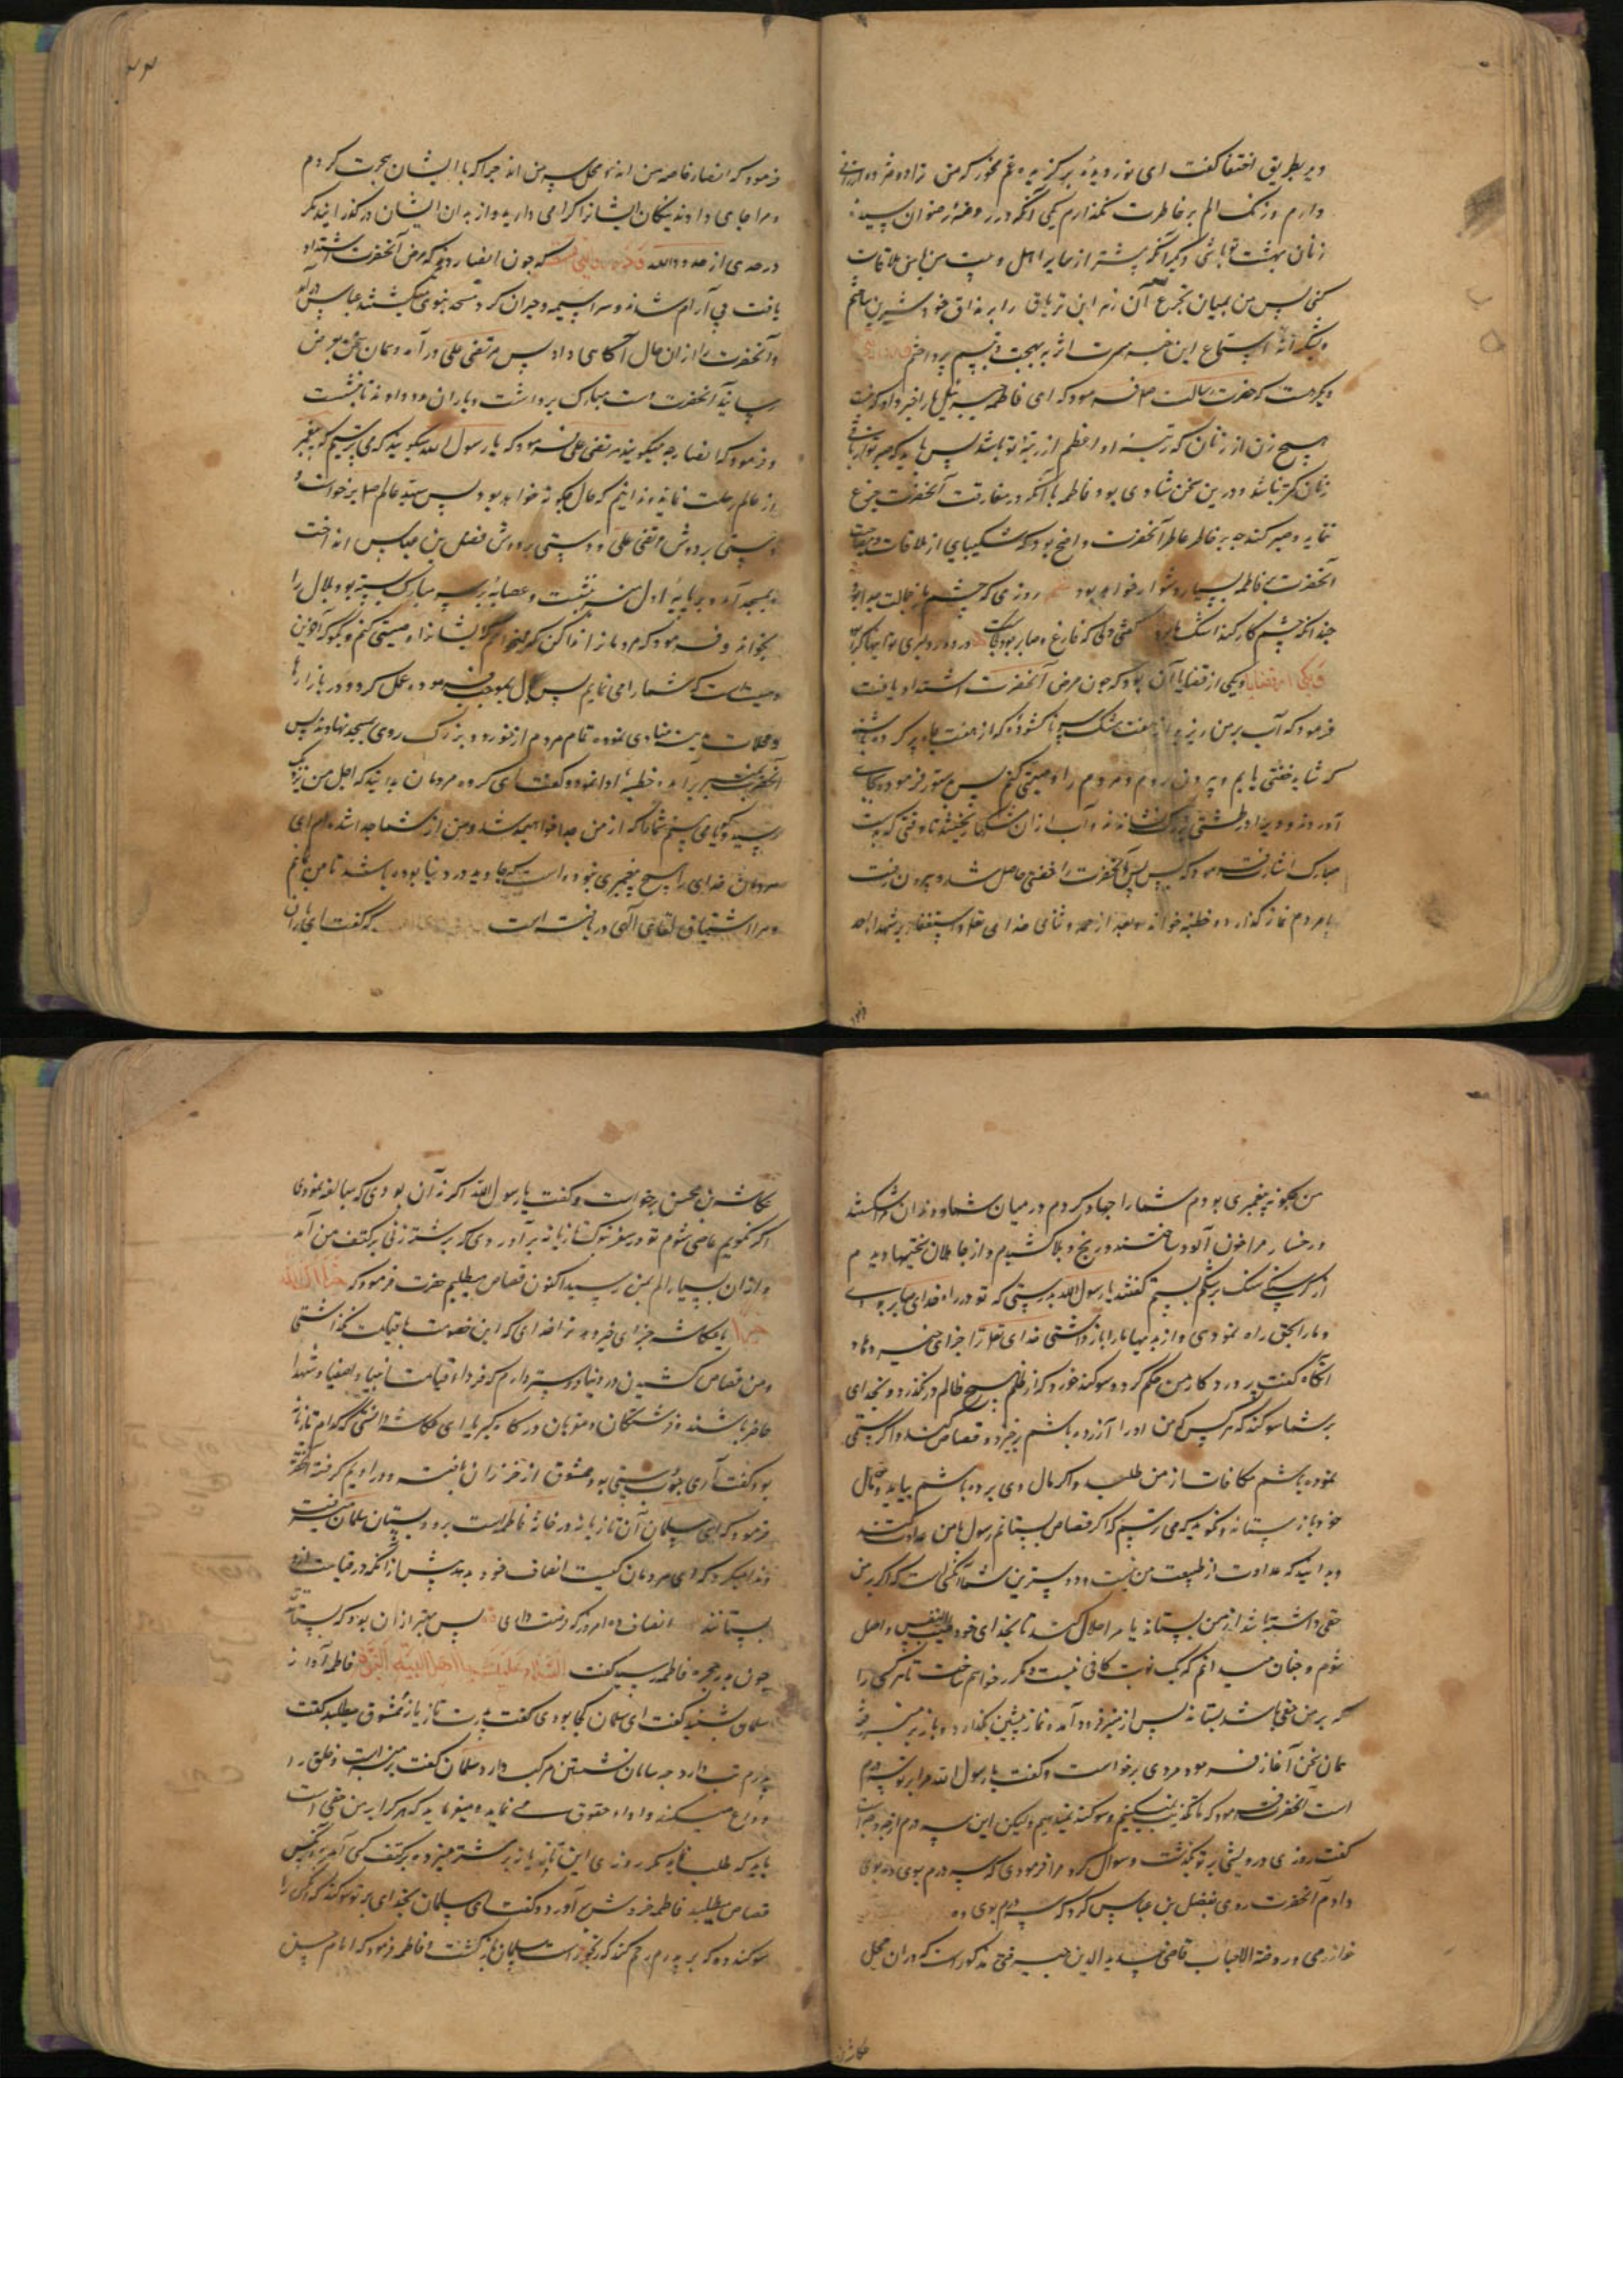 دیگر بطریق اختفا گفت ای نور دیده برگزیده غم مخور که من
دارم و زنگ الم بر خاطرت نگذارم یکی آنکه در روضه رضوان سیده
زنان بهشت تو باشی دیگر آنکه پیشتر از سایر اهل بیت من با من ملاقات
کنی پس من بمیان تجرع آن زهر این تریاق را بمذاق خود شیرین یافتم
و بشکرانه استماع این خبر مسرت اثر به بهجت و تبسم پرداختم
دیگر هست که حضرت رسالت صلعم فرمود که ای فاطمه جبرئیل مارا خبر داد که
هیچ زن از زنان که رتبه او اعظم از رتبه تو باشد پس باید که صبر تو از باقی
زنان کمتر نباشد و درین سخن شادی بود فاطمه با آنکه در مفارقت آنحضرت جزع
نماید و صبر کند چه بر خاطر عاطر آنحضرت واضح بود که شکیبایی از ملاقات
آنحضرت بفاطمه بسیار دشوار خواهد بود روزی که چشم
چندانکه چشم کار کند اشک
یکی از قضایا آن بود که چون مرض آنحضرت اشتداد یافت
فرمود که آب بر من ریزید از هفت مشک سر ناگشوده که از هفت چاه پر کرده باشند
که شاید خفتی یابم و بیرون روم و مردم را وصیتی کنم پس بدستور فرموده بجای
آوردند و ویرا در طشتی بزرگ نشاندند و آب از آن مشکها ریختند تا وقتی که بدست
مبارک اشارت فرمود که بس پس آنحضرت را خفتی حاصل شد و بیرون رفت
با مردم نماز گذارد و خطبه خواند و بعد از حمد و ثنای خدای تعالی و استغفار بر شهدا احد
فرمود که انصار خاصه من اند و محل سر من اند چرا که با ایشان هجرت کردم
و مرا جای دادند نیکان ایشانرا گرامی دارید و از بدان ایشان درگذرانید مگر
در حدی از حدود الله که چون انصار دیدند که مرض آنحضرت اشتداد
یافت بی آرام شدند و سراسیمه و حیران گرد مسجد نبوی میگشتند عباس درآمد
و آنحضرت را از آن حال آگاهی داد پس مرتضی علی درآمد و همان سخن بعرض
رسانید آنحضرت دست مبارک برداشت و یاران مدد دادند تا بنشست
و فرمود که انصار چه میگویند مرتضی علی فرمود که یا رسول الله میگویند که می ترسیم که پیغمبر
از عالم رحلت نماید و ندانیم که حال چگونه خواهد بود پس سید عالم صلعم برخواست و
دستی بر دوش مرتضی علی و دستی بر دوش فضل بن عباس انداخت
بمسجد آمد و بر پایه اول منبر نشست و عصابه بر سر مبارک بسته بود بلال را
بخواند و فرمود که مردمانرا ندا کن که میخواهم ایشانرا وصیتی کنم و بگو که آخرین
وصیت است که شما را می نمایم پس بلال بموجب فرموده عمل کرد و در بازارها
و محلات مدینه منادی نمود تمام مردم از خورد و بزرگ روی بمسجد نهادند پس
آنحضرت بمنبر برآمد و خطبه ادا نمود و گفت ای گروه مردمان بدانید که اجل من نزدیک
رسید و گویا می بینم شما را که از من جدا خواهید شد و من از شما جدا شده ام ای
مردمان خدای را هیچ پیغمبری نبوده است که جاوید در دنیا بوده باشد تا من باشم
و مرا اشتیاق بلقای الهی دریافته است که گفت ای یاران
من چگونه پیغمبری بودم شما را جهاد کردم در میان شما و دندان مرا شکستند
و رخسار مرا خون آلود ساختند و رنج و بلا کشیدم و از جاهلان سختیها دیدم
از گرسنگی سنگ بر شکم بستم گفتند یا رسول الله بدرستی که تو در راه خدای صابر بودی
و ما را بحق راه نمودی و از بدیها ما را باز داشتی خدای تعالی ترا جزای خیر دهاد
آنگاه گفت پروردگار من حکم کرد و سوگند خورد که از ظلم هیچ ظالم درنگذرد و بخدای
بر شما سوگند که هر کس که من او را آزرده باشم برخیزد و قصاص کند و اگر ستمی
نموده باشم مکافات از من طلبد و اگر مال وی برده باشم بیاید و مال
خود باز ستاند و نگوید که می ترسم که اگر قصاص بستانم رسول با من عداوت کند
و بدانید که عداوت از طبیعت من نیست و دوسترین شما آنکس است که اگر بر من
حقی داشته باشد از من بستاند یا مرا حلال کند تا بخدای خود طیب النفس واصل
شوم و چنان میدانم که یک نوبت کافی نیست و مکرر خواهم ساخت تا هر کسی را
که بر من حقی باشد بستاند پس از منبر فرود آمد و نماز پیشین بگذارد و باز بر منبر رفته
همان سخن آغاز فرمود مردی برخواست و گفت یا رسول الله مرا بر تو سه درم
است آنحضرت فرمود که ما تکذیب نمیکنیم و سوگند نمیدهیم ولیکن این سه درم از چه وجه است
گفت روزی درویشی بر تو بگذشت و سوال کرد مرا فرمودی که سه درم بوی ده بوی
دادم آنحضرت روی بفضل بن عباس کرد که سه درم بوی ده
خوارزمی و روضة الاحباب قاضی سدید الدین مذکور است که در آن محل
عکاشه
عکاشه بن محسن برخواست و گفت یا رسول الله اگر نه آن بودی که مبالغه نمودی
اگر نگویم عاصی شوم تو در سفر تبوک تازیانه برآوردی که بر شتر زنی بر کتف من آمد
و از آن بسیار الم بمن رسید اکنون قصاص میطلبم حضرت فرمود که جزاک الله
خیرا یا عکاشه جزای خیر دهد ترا خدای که این خصومت با قیامت نگذاشتی
و من قصاص کشیدن در دنیا دوستر دارم که فردا قیامت انبیا و اصفیا و شهدا
حاضر باشند و فرشتگان و مقربان در کار گیر یا ای عکاشه دانستی که کدام تازیانه
بود گفت آری چوب دستی بود ممشوق از خیزران بافته و در ادیم گرفته آنحضرت
فرمود که ای سلمان آن تازیانه در خانه فاطمه است برو و بستان سلمان میرفت
و ندا میکرد که ای مردمان کیست انصاف خود بدهد پیش از آنکه در قیامت ازو
بستانند انصاف ده امروز که فرصت داری
چون بدر حجره فاطمه رسید گفت السلام علیکم یا اهل البیت النبوة فاطمه آواز
سلمان بشنید گفت ای سلمان کجا بودی گفت پدرت تازیانه ممشوق میطلبد گفت
پدرم تب دارد چه سامان نشستن مرکب دارد سلمان گفت بر منبر است و خلق را
وداع میکند و اداء حقوق می نماید و میفرماید که هر کرا بر من حقی است
باید که طلب نماید مگر روزی این تازیانه بر شتر میزده بر کتف کسی آمده و آنکس
قصاص میطلبد فاطمه خروش برآورد و گفت ای سلمان بخدای بر تو سوگند که آنکس را
سوگند ده که بر پدرم رحم کند که رنجور است سلمان بازگشت و فاطمه فرمود که امام حسن